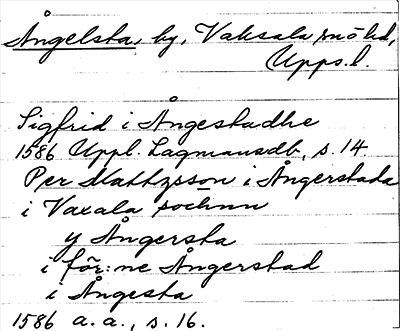 Ångelsta, by, Vaksala sn ö hd,
Upps.l.
Sigfrid i Ångestadhe
1586 Uppl. Lagmansdb, s. 14.
Per Mattzsson i Ångerstada
i Vaxala sochnn
y Ångersta
i för:ne Ångerstad
i Ångesta
1586 a. a., s. 16.